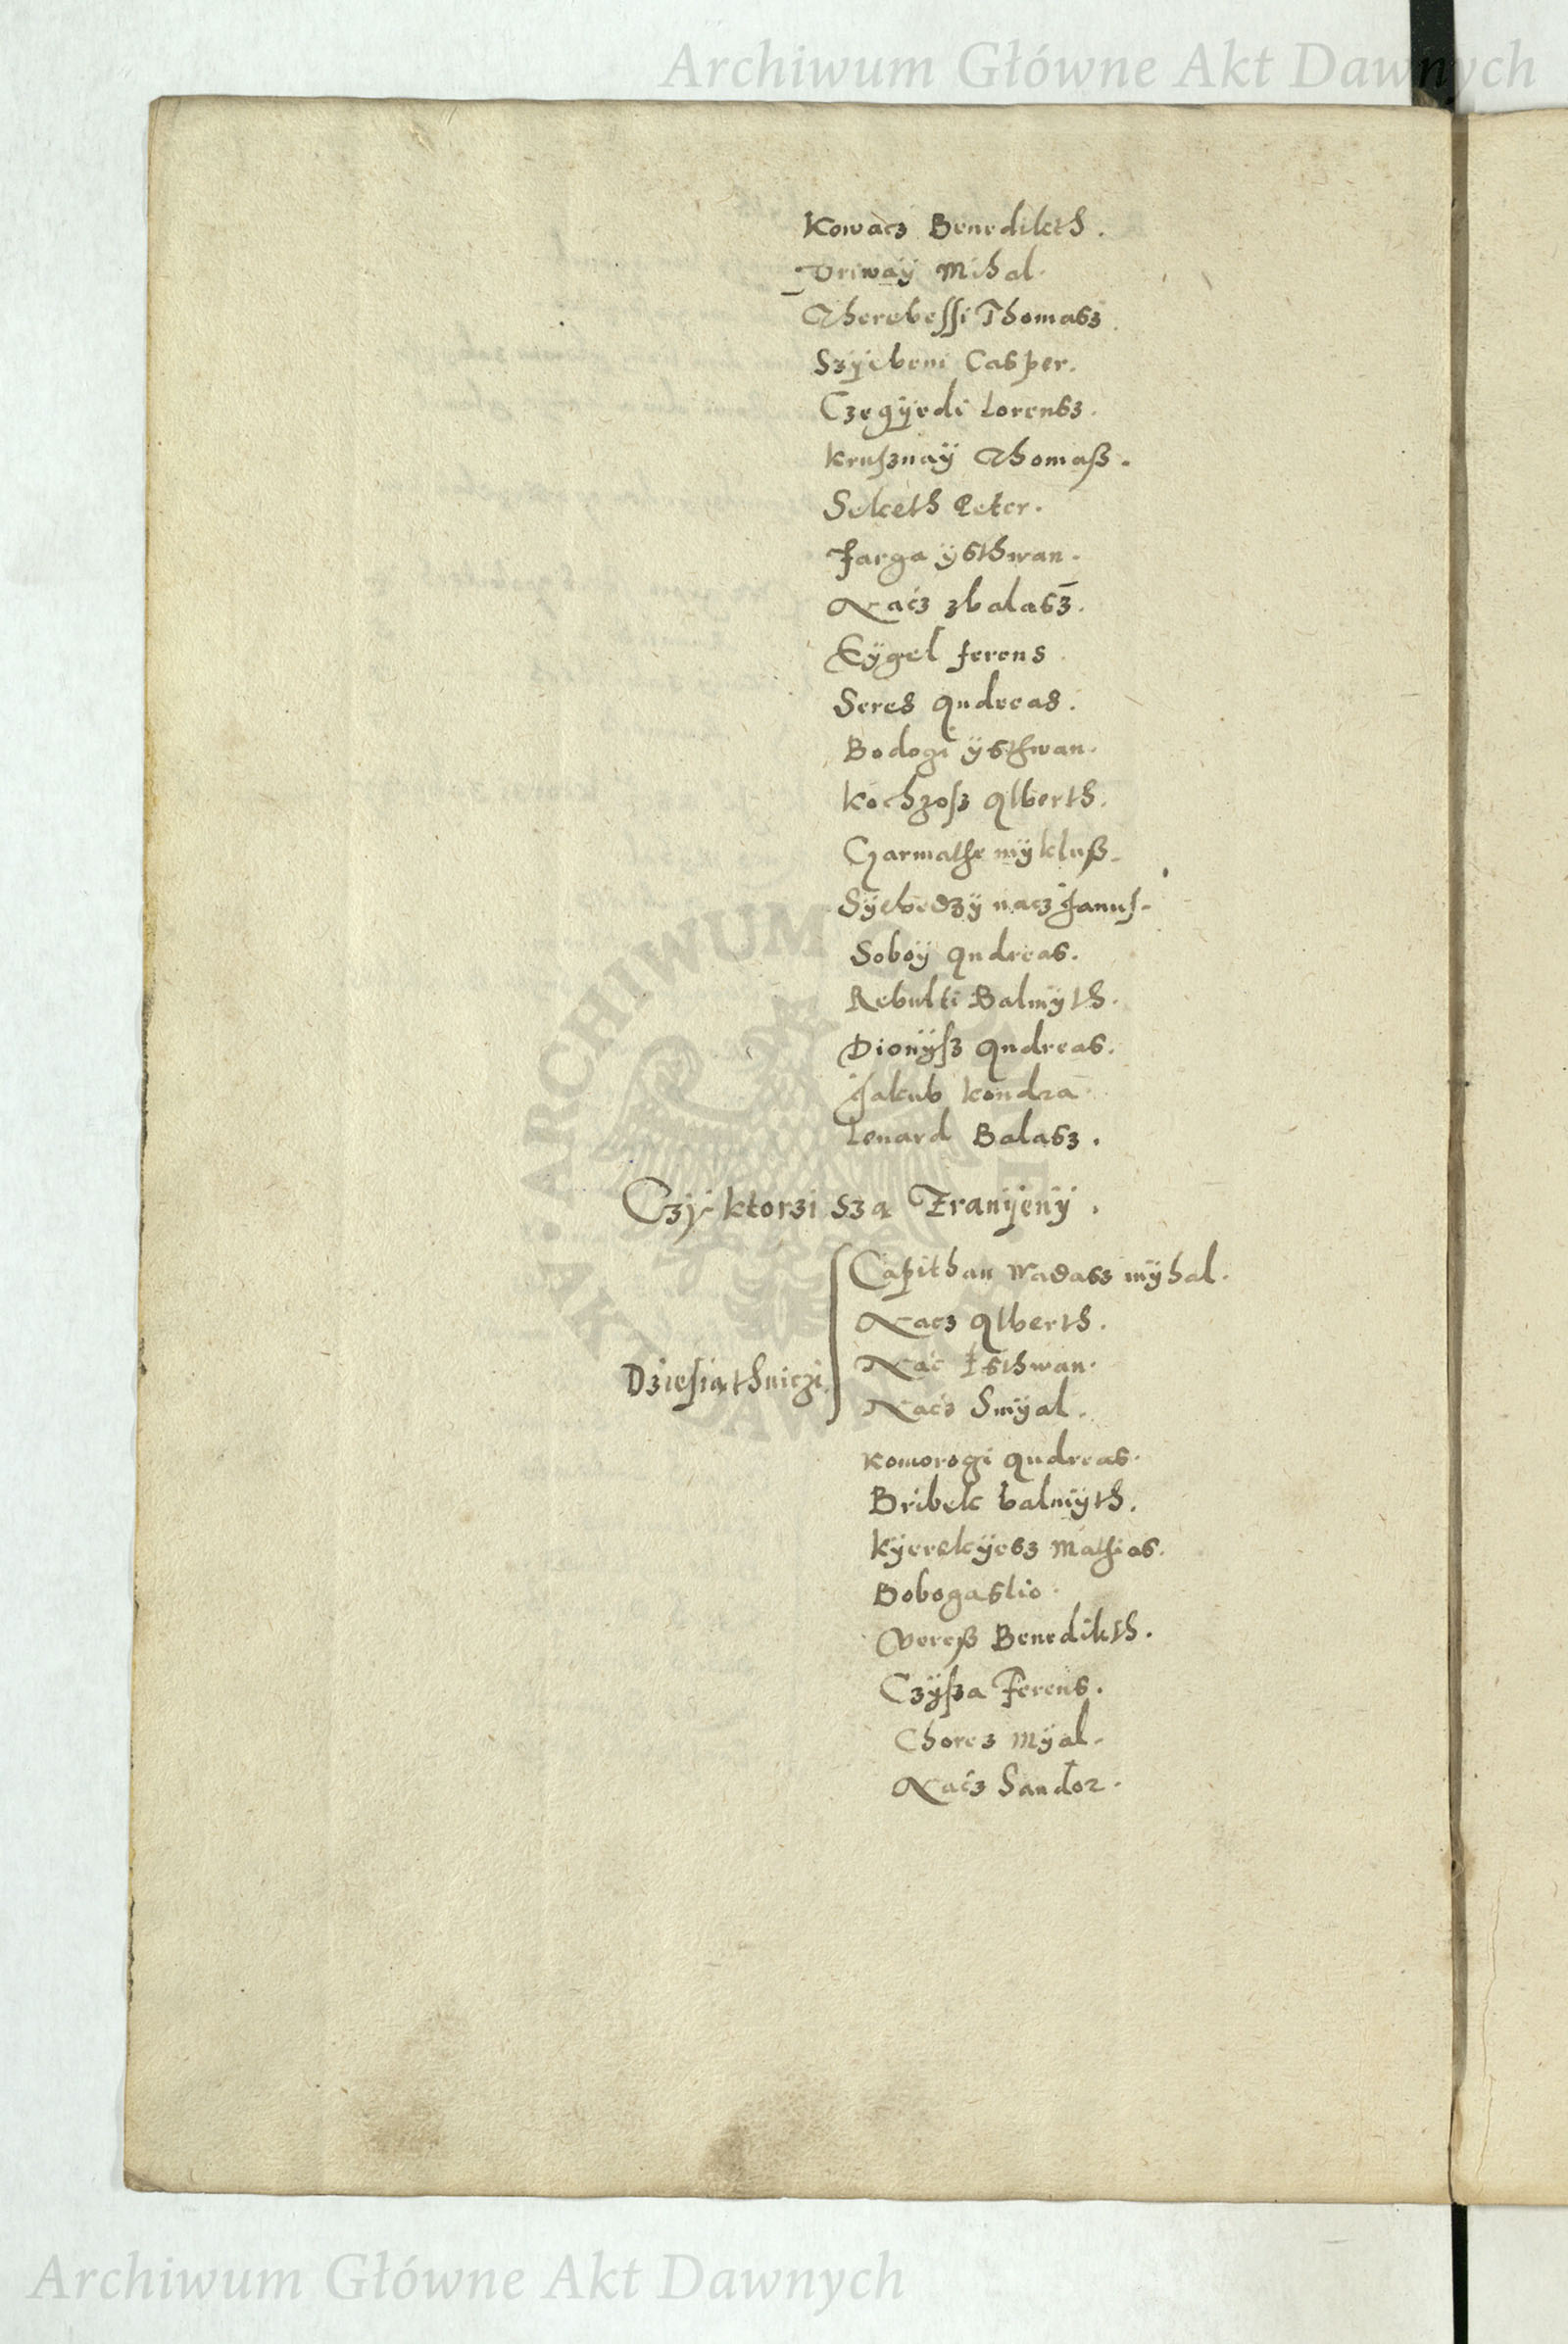 Archiwum Główne Akt Dawnych
Kowacz Benedikth.
Driwaÿ Mihal.
Therebessi Thomasz.
Szÿebeni Casper.
Czegÿedi Lorensz.
Krusznaÿ Thomasz.
Seketh Peter.
Farga ÿsthwan.
Nacz zbalasz.
Eÿgel ferens
Seres Andreas.
Bodogi ÿsthwan.
Kochzosz Alberth.
Czarmathe mÿklusz.
Sÿebedzÿ nacz Janus.
Soboÿ Andreas.
Rebulti Balmÿth.
Dionÿsz Andreas.
Jakub Kondra
Lenard Balasz.
Czÿ ktorzi szą Zranÿenÿ.
Capithan Wadasz mÿhal.
Nacz Alberth.
Nac Isthwan.
Dziesiąthniczi
Nacz Smÿal.
Komorogi Andreas.
Bribek balmÿth.
Kÿerekÿesz Mathias.
Bobogaslio.
Veresz Benedikth.
Czÿsza Ferens.
Chorez Mÿal.
Nacz Sandor.
ARCHIWUM GŁÓWNE AKT DAWNYCH
Archiwum Główne Akt Dawnych